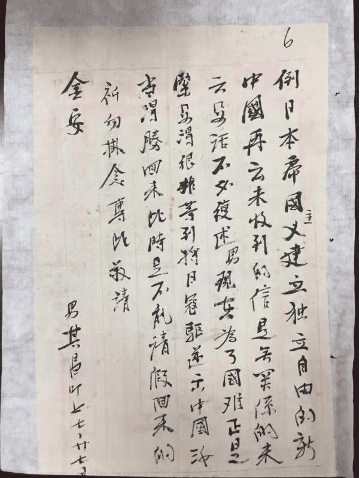 6
倒日本帝國主义建立独立自由的新
中國再云未收到的信是关係的来
云话不必復述男現在為了國难正是
緊得很非等到将日寇驱逐中國
当得勝回来此時是不能請假回来的
祈勿掛念專此敬請
金安
男其昌叩上七廿七日